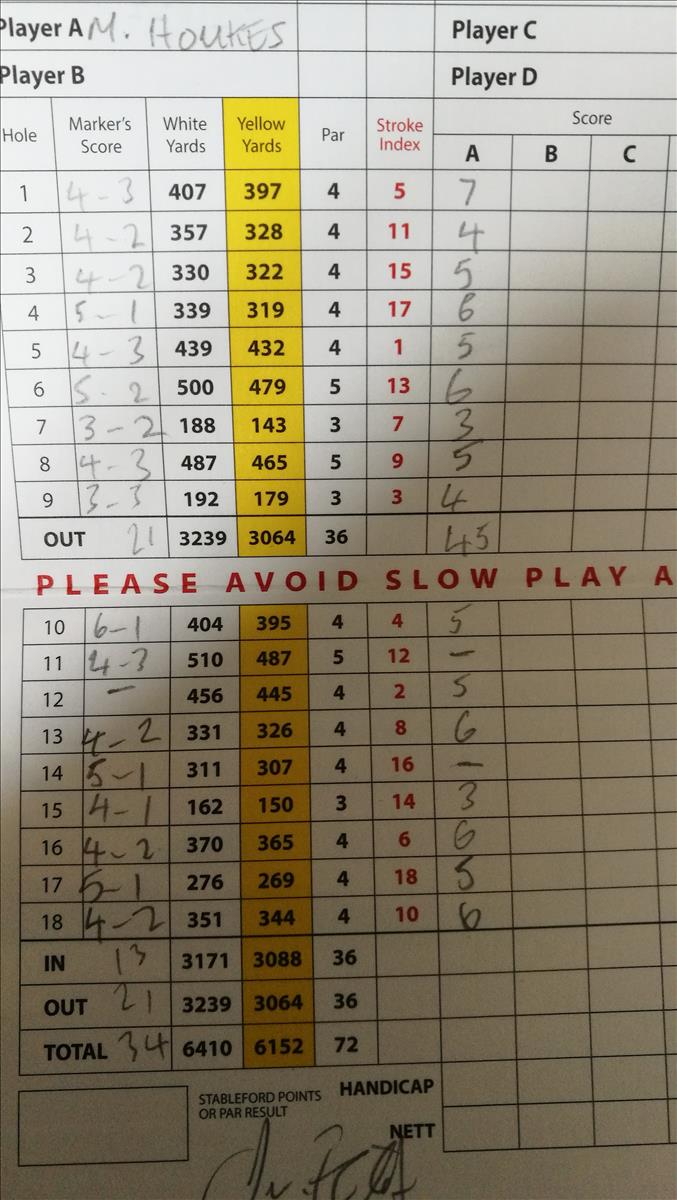 Player A M. HOUKES Player C
Player B Player D
Hole Marker's Score White Yards Yellow Yards Par Stroke Index Score
A B C
1 4-3 407 397 4 5 7
2 4-2 357 328 4 11 4
3 4-2 330 322 4 15 5
4 5-1 339 319 4 17 6
5 4-3 439 432 4 1 5
6 5-2 500 479 5 13 6
7 3-2 188 143 3 7 3
8 4-3 487 465 5 9 5
9 3-3 192 179 3 3 4
OUT 21 3239 3064 36 45
PLEASE AVOID SLOW PLAY A
10 6-1 404 395 4 4 5
11 4-3 510 487 5 12 -
12 - 456 445 4 2 5
13 4-2 331 326 4 8 6
14 5-1 311 307 4 16 -
15 4-1 162 150 3 14 3
16 4-2 370 365 4 6 6
17 5-1 276 269 4 18 5
18 4-2 351 344 4 10 6
IN 13 3171 3088 36
OUT 21 3239 3064 36
TOTAL 34 6410 6152 72
STABLEFORD POINTS HANDICAP
OR PAR RESULT
NETT